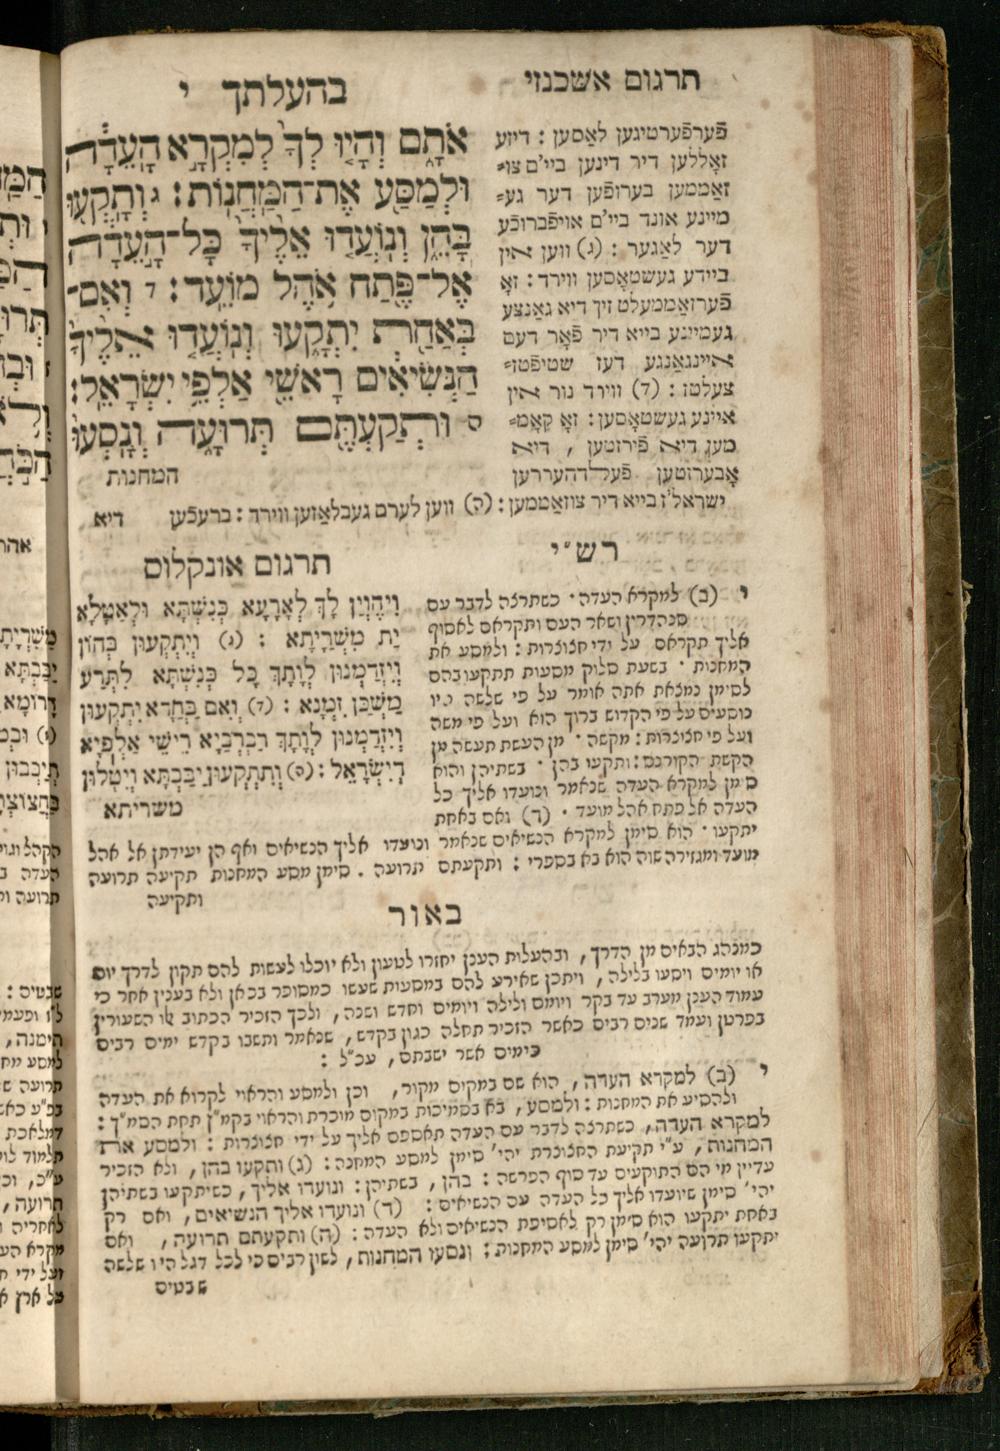 בהעלתך י
אֹתָם וְהָיוּ לְךָ לְמִקְרָא הָעֵדָה
וּלְמַסַּע אֶת־הַמַּחֲנוֹת׃ ג וְתָקְעוּ
בָּהֵן וְנוֹעֲדוּ אֵלֶיךָ כָּל־הָעֵדָה
אֶל־פֶּתַח אֹהֶל מוֹעֵד׃ ד וְאִם־
בְּאַחַת יִתְקָעוּ וְנוֹעֲדוּ אֵלֶיךָ
הַנְּשִׂיאִים רָאשֵׁי אַלְפֵי יִשְׂרָאֵל׃
ה וּתְקַעְתֶּם תְּרוּעָה וְנָסְעוּ
המחנות
תרגום אשכנזי
פֿערפֿערטיגען לאַסען : דיזע
זאָללען דיר דינען ביי'ם צו⸗
זאַממען בערופֿען דער גע⸗
מיינע אונד ביי'ם אויפֿברוכֿע
דער לאַגער : (ג) ווען אין
ביידע געשטאָסען ווירד : זאָ
פֿערזאַממעלט זיך דיא גאַנצע
געמיינע בייא דיר פֿאָר דעם
איינגאַנגע דעז שטיפֿטז⸗
צעלטז : (ד) ווירד נור אין
איינע געשטאָסען : זאָ קאָמ⸗
מען דיא פֿירזטען , דיא
אָבערזטען פֿעלדהעררען
ישראל'ז בייא דיר צוזאַממען : (ה) ווען לערם געבלאַזען ווירד : ברעכֿען דיא
תרגום אונקלוס
וִיהֶוְיָן לָךְ לְאַרָעָא כְּנִשְׁתָּא וּלְאַטָלָא
יַת מַשְׁרְיָתָא : (ג) וְיִתְקְעוּן בְּהוֹן
וְיִזְדַּמְּנוּן לְוָתָךְ כָּל כְּנִשְׁתָּא לִתְרַע
מַשְׁכַּן זִמְנָא : (ד) וְאִם בַּחֲדָא יִתְקְעוּן
וְיִזְדַּמְּנוּן לְוָתָךְ רַבְרְבַיָּא רֵישֵׁי אַלְפַיָּא
דְיִשְׂרָאֵל : (ה) וְתִתְקְעוּן יַבַּבְתָּא וְיִטְּלוּן
משריתא
רש״י
י (ב) למקרא העדה . כשתרצה לדבר עם
סנהדרין ושאר העם ותקראם לאסוף
אליך תקראם על ידי חצוצרות : ולמסע את
המחנות . בשעת סלוק מסעות תתקעו בהם
לסימן נמצאת אתה אומר על פי שלשה היו
נוסעים על פי הקדוש ברוך הוא ועל פי משה
ועל פי חצוצרות : מקשה . מן העשת תעשה מן
הקשת הקורנס : ותקעו בהן . בשתיהן והוא
סימן למקרא העדה שנאמר ונועדו אליך כל
העדה אל פתח אהל מועד . (ד) ואם באחת
יתקעו . הוא סימן למקרא הנשיאים שנאמר ונועדו אליך הנשיאים ואף הן יעידתן אל אהל
מועד ומגזירה שוה הוא בא בספרי : ותקעתם תרועה . סימן מסע המחנות תקיעה תרועה
ותקיעה
באור
כמנהג הבאים מן הדרך , ובהעלות הענן יחזרו לטעון ולא יוכלו לעשות להם תקון לדרך יום
או יומים ויסעו בלילה , ויתכן שאירע להם במסעות שעשו כמסופר בכאן ולא בענין אחר כי
עמוד הענן מערב עד בקר ויומם ולילה ויומים וחדש ושנה , ולכך הזכיר הכתוב אלו השעורין
בפרטן ועמד שנים רבים כאשר הזכיר תחלה כגון בקדש , שנאמר ותשבו בקדש ימים רבים
כימים אשר ישבתם , עכ״ל :
י (ב) למקרא העדה , הוא שם במקום מקור , וכן ולמסע והראוי לקרוא את העדה
ולהסיע את המחנות : ולמסע , בא בסמיכות במקום מוכרת והראוי בקמ״ץ תחת הסמ״ך :
למקרא העדה , כשתרצה לדבר עם העדה תאספם אליך על ידי חצוצרות : ולמסע את
המחנות , ע״י תקיעת החצוצרת יהי' סימן למסע המחנה : (ג) ותקעו בהן , ולא הזכיר
עדיין מי הם התוקעים עד סוף הפרשה : בהן , בשתיהן : ונועדו אליך , כשיתקעו בשתיהן
יהי' סימן שיועדו אליך כל העדה עם הנשיאים : (ד) ונועדו אליך הנשיאים , ואם רק
באחת יתקעו הוא סימן רק לאסיפת הנשיאים ולא העדה : (ה) ותקעתם תרועה , ואם
יתקעו תרועה יהי' סימן למסע המחנות : ונסעו המחנות , לשון רבים כי לכל דגל היו שלשה
שבטים